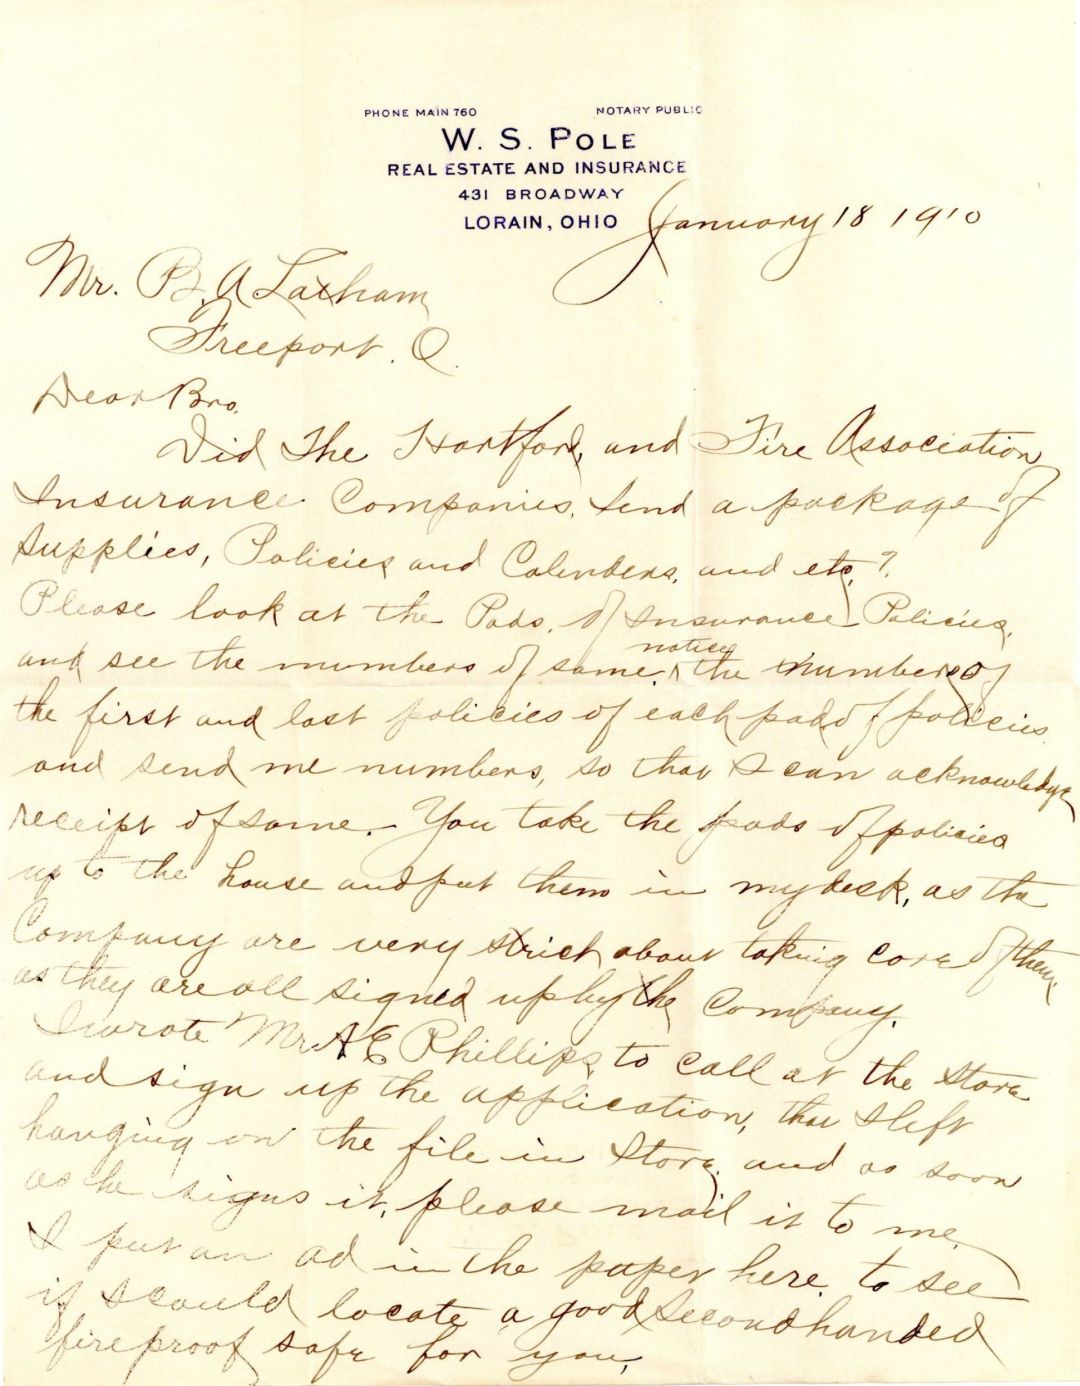 PHONE MAIN 760 NOTARY PUBLIC
W. S. POLE
REAL ESTATE AND INSURANCE
431 BROADWAY
LORAIN, OHIO January 18 1910
Mr. B. A Latham
Freeport. O.
Dear Bro.
Did The Hartford, and Fire Association
Insurance Companies, send a package of
supplies, Policies and Calenders, and etc,?.
Please look at the Pads, of Insurance Policies,
and see the numbers of same, notice the numbers of
the first and last policies of each pad of policies
and send me numbers, so that I can acknowledge
receipt of same. You take the pads of policies
up to the house and put them in my desk, as the
Company are very strict about taking care of them,
as they are all signed up by the Company.
I wrote Mr A E Phillips, to call at the store
and sign up the application, that I left
hanging on the file in store, and as soon
as he signs it, please mail it to me.
I put an ad in the paper here, to see
if I could locate a good secondhanded
fireproof safe for you,